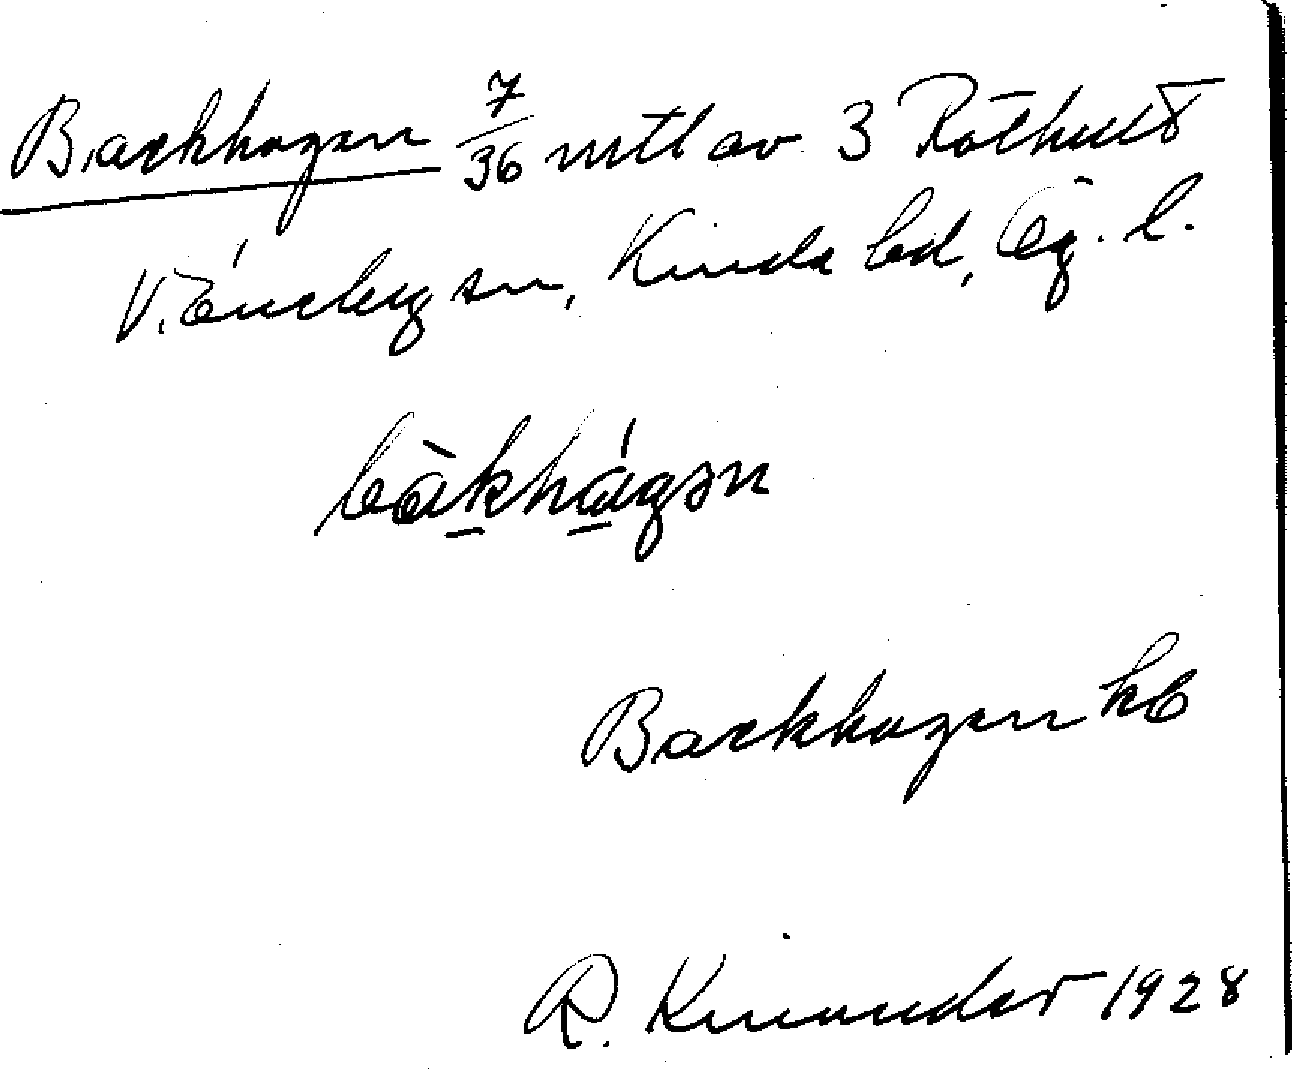 Backhagen 7/36 mtl av 3 Råthult
V. Eneby sn, Kinda hd, Ög. l.
bàkhágən
Backhagen kb
R. Kinander 1928